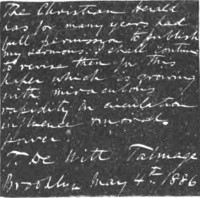 The Christian Herald
has for many years had
full permission to publish
my sermons. I shall continue
to revise them for this
paper which is growing
with miraculous
rapidity in circulation
influence & moral
power.
T. De Witt Talmage
Brooklyn May 4th 1886